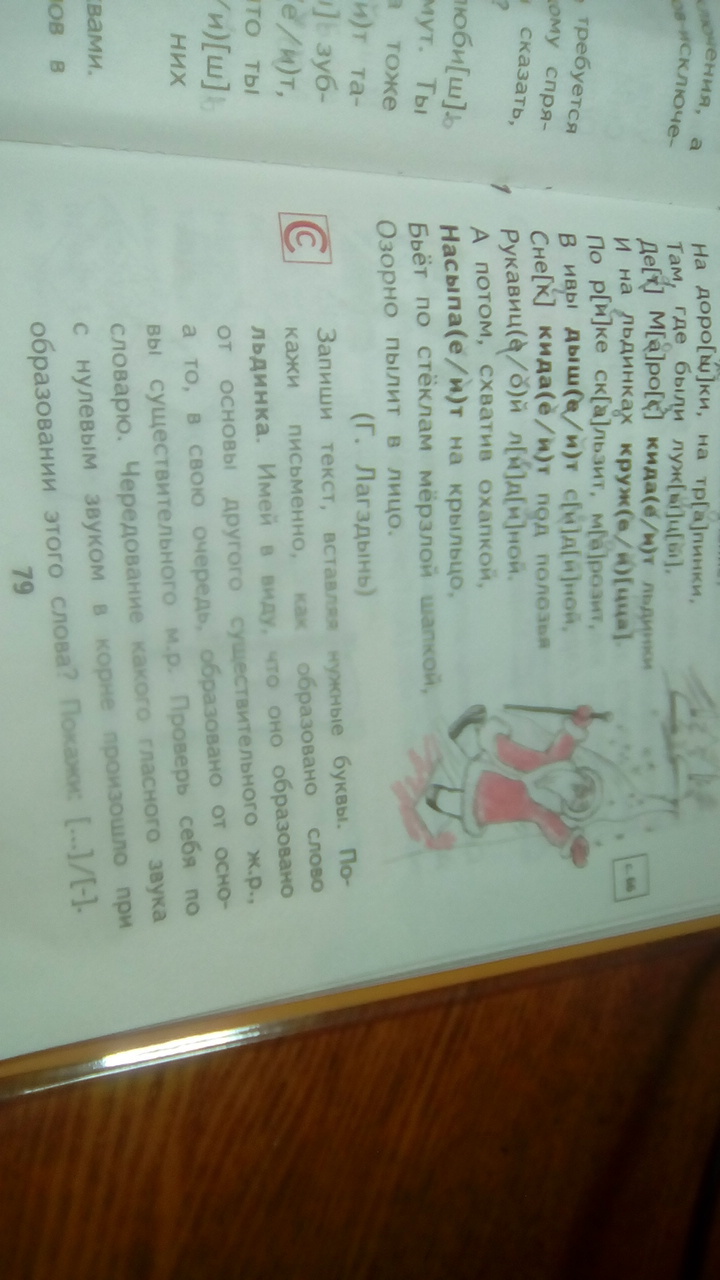 ключения, а
ов-исключе-
требуется
кому спря-
сказать,
?
люби[ш]ь
мут. Ты
а тоже
и)т та-
ш]ь зуб-
(е/и)т,
что ты
/и)[ш]ь
них
квами.
ов в
На доро[ы]ки, на тр[а]пинки,
Там, где были луж[ы]ц[ы],
Де[т] М[а]ро[с] кида(е/и)т льдинки
И на льдинках круж(е/и)[цца].
По р[и]ке ск[а]льзит, м[а]розит,
В ивы дыш(е/и)т с[и]д[и]ной,
Сне[к] кида(е/и)т под полозья
Рукавиц(е/о)й л[и]д[и]ной.
А потом, схватив охапкой,
Насыпа(е/и)т на крыльцо,
Бьёт по стёклам мёрзлой шапкой,
Озорно пылит в лицо.
(Г. Лагздынь)
с. 66
С
Запиши текст, вставляя нужные буквы. По-
кажи письменно, как образовано слово
льдинка. Имей в виду, что оно образовано
от основы другого существительного ж.р.,
а то, в свою очередь, образовано от осно-
вы существительного м.р. Проверь себя по
словарю. Чередование какого гласного звука
с нулевым звуком в корне произошло при
образовании этого слова? Покажи: [...]/[-].
79